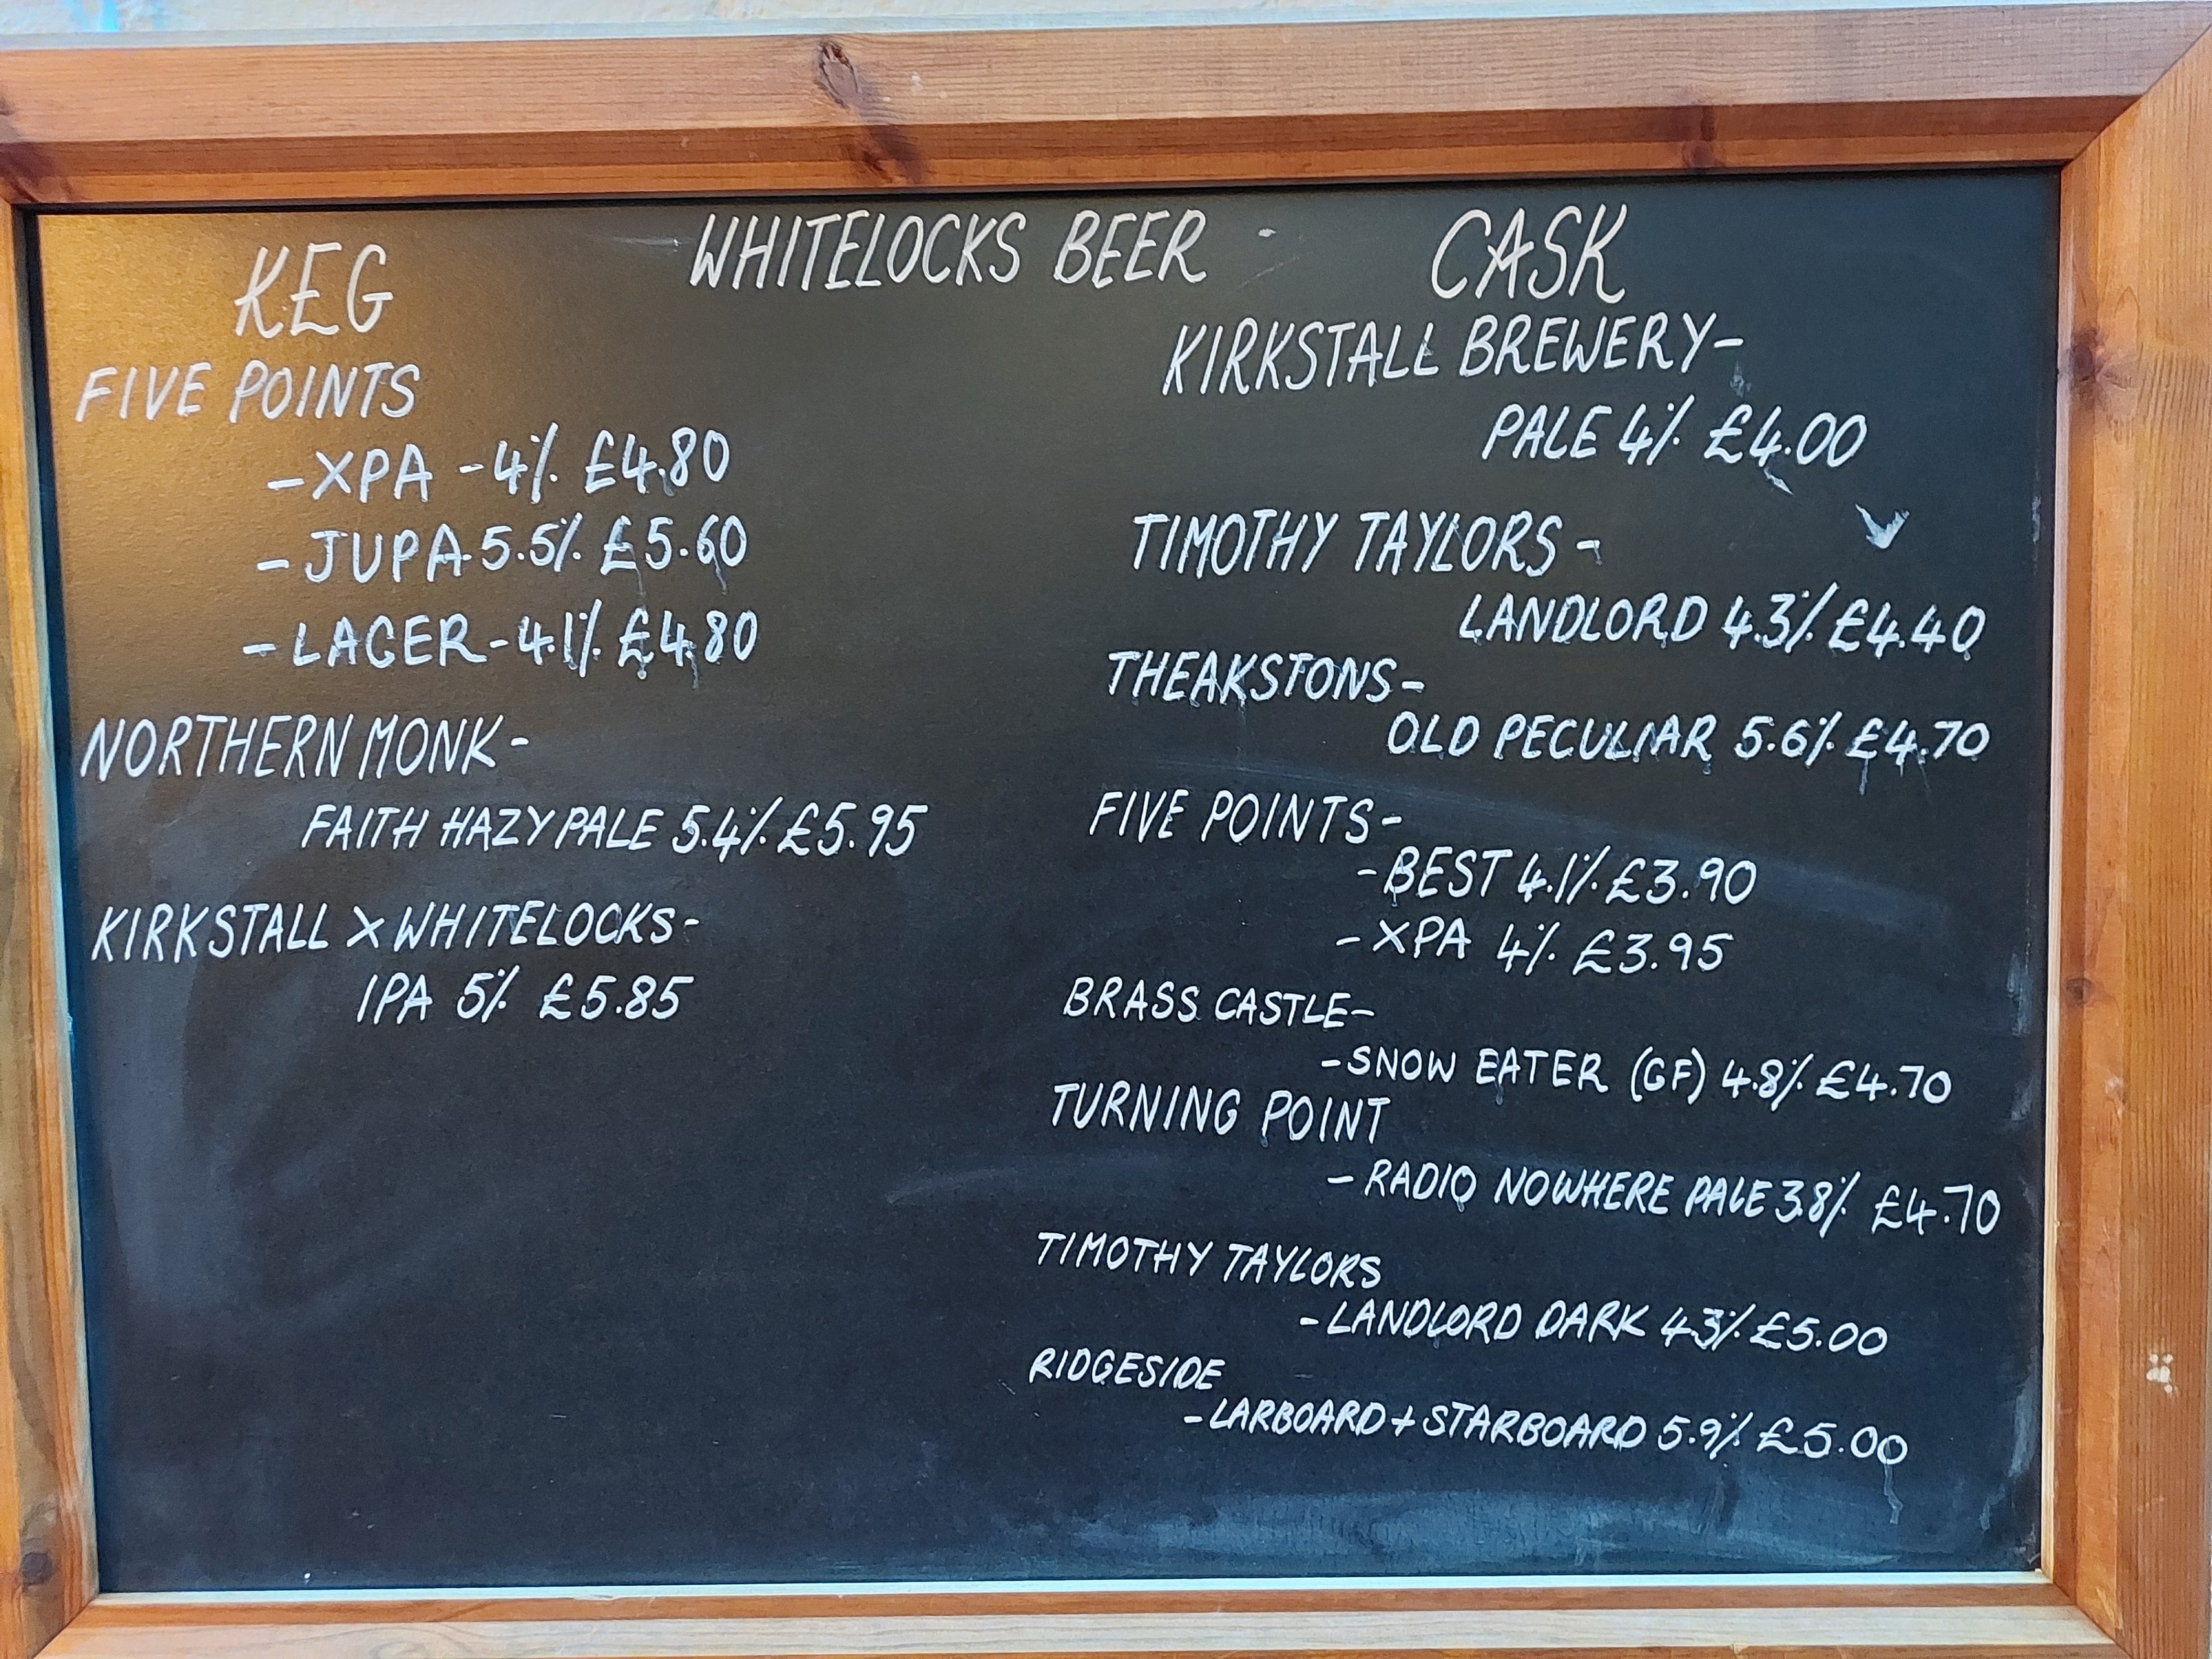 WHITELOCKS BEER -
KEG
FIVE POINTS
-XPA -4% £4.80
-JUPA 5.5% £5.60
-LAGER-4.1% £4.80
NORTHERN MONK-
FAITH HAZY PALE 5.4% £5.95
KIRKSTALL X WHITELOCKS-
IPA 5% £5.85
CASK
KIRKSTALL BREWERY-
PALE 4% £4.00
TIMOTHY TAYLORS-
LANDLORD 4.3% £4.40
THEAKSTONS-
OLD PECULIAR 5.6% £4.70
FIVE POINTS-
-BEST 4.1% £3.90
-XPA 4% £3.95
BRASS CASTLE-
-SNOW EATER (GF) 4.8% £4.70
TURNING POINT
-RADIO NOWHERE PALE 3.8% £4.70
TIMOTHY TAYLORS
-LANDLORD DARK 4.3% £5.00
RIDGESIDE
-LARBOARD + STARBOARD 5.9% £5.00